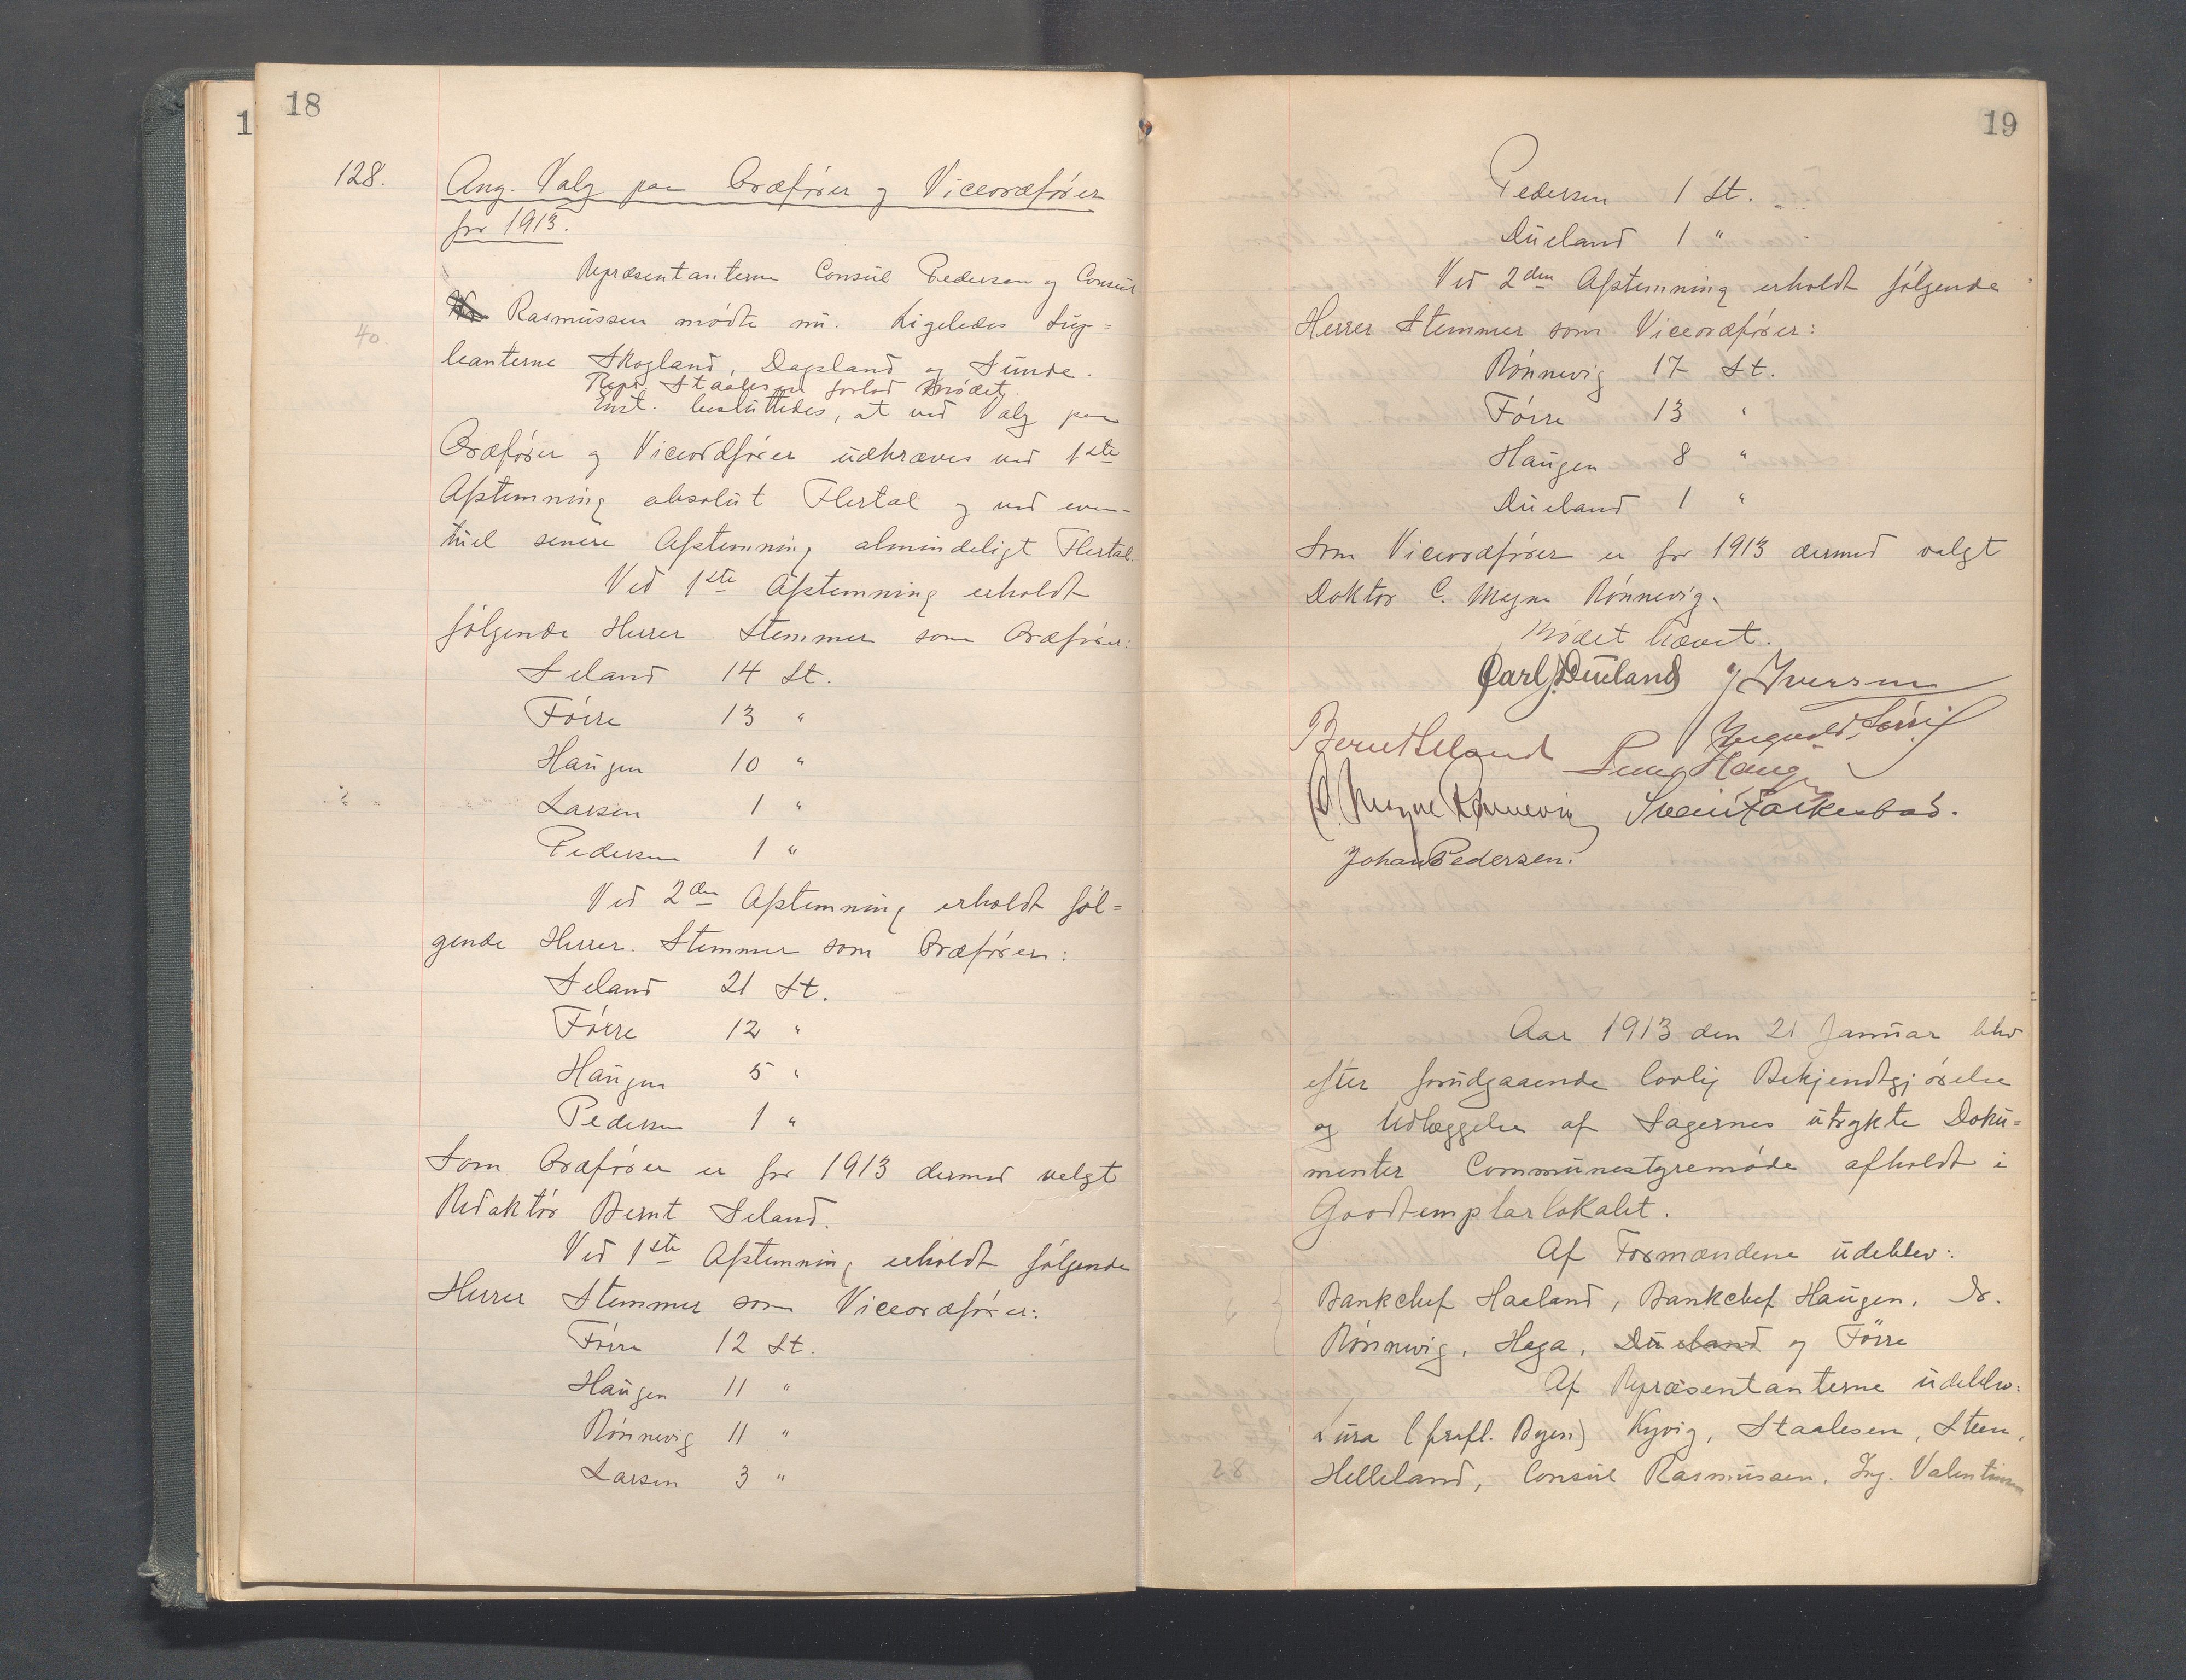 18
128.
Ang. Valg paa Ordfører og Viceordfører
for 1913.
Repræsentanterne Consul Pedersen og Consul
Rasmussen mødte nu. Ligeledes Sup=
40.
leanterne Skogland, Dagsland og Sunde.
Repr. Staalesen forlod mødet.
Enst. besluttedes, at ved Valg paa
Ordfører og Viceordfører udkræves ved 1ste
Afstemning absolut Flertal og ved even-
tuel senere Afstemning almindeligt Flertal.
Ved 1ste Afstemning erholdt
følgende Herrer Stemmer som Ordfører:
Seland 14 St.
Førre 13 "
Haugen 10 "
Larsen 1 "
Pedersen 1 "
Ved 2den Afstemning erholdt føl=
gende Herrer Stemmer som Ordfører:
Seland 21 St.
Førre 12 "
Haugen 5 "
Pedersen 1 "
Som Ordfører er for 1913 dermed valgt
Redaktør Bernt Seland.
Ved 1ste Afstemning erholdt følgende
Herrer Stemmer som Viceordfører:
Førre 12 St.
Haugen 11 "
Rønnevig 11 "
Larsen 3 "
19
Pedersen 1 St.
Dueland 1 "
Ved 2den Afstemning erholdt følgende
Herrer Stemmer som Viceordfører:
Rønnevig 17 St.
Førre 13 "
Haugen 8 "
Dueland 1 "
Som Viceordfører er for 1913 dermed valgt
Doktor C. Magne Rønnevig.
Mødet hævet.
Carl J. Dueland J Iversen
Bernt Seland Ingvald Førre
Haugen
C. Magne Rønnevig Svein Farkesbad.
Johan Pedersen.
Aar 1913 den 21 Januar blev
efter forudgaaende lovlig Bekjendtgjørelse
og Udlæggelse af Sagernes utrykte Doku=
menter Communestyremøde afholdt i
Goodtemplarlokalet.
Af Formændene udeblev:
Bankchef Haaland, Bankchef Haugen, Dr.
Rønnevig, Haga, Dueland og Førre
Af Repræsentanterne udeblev:
Lura (frafl. Byen) Kyvig, Staalesen, Steen,
28
Helleland, Consul Rasmussen, Ing. Valentinsen